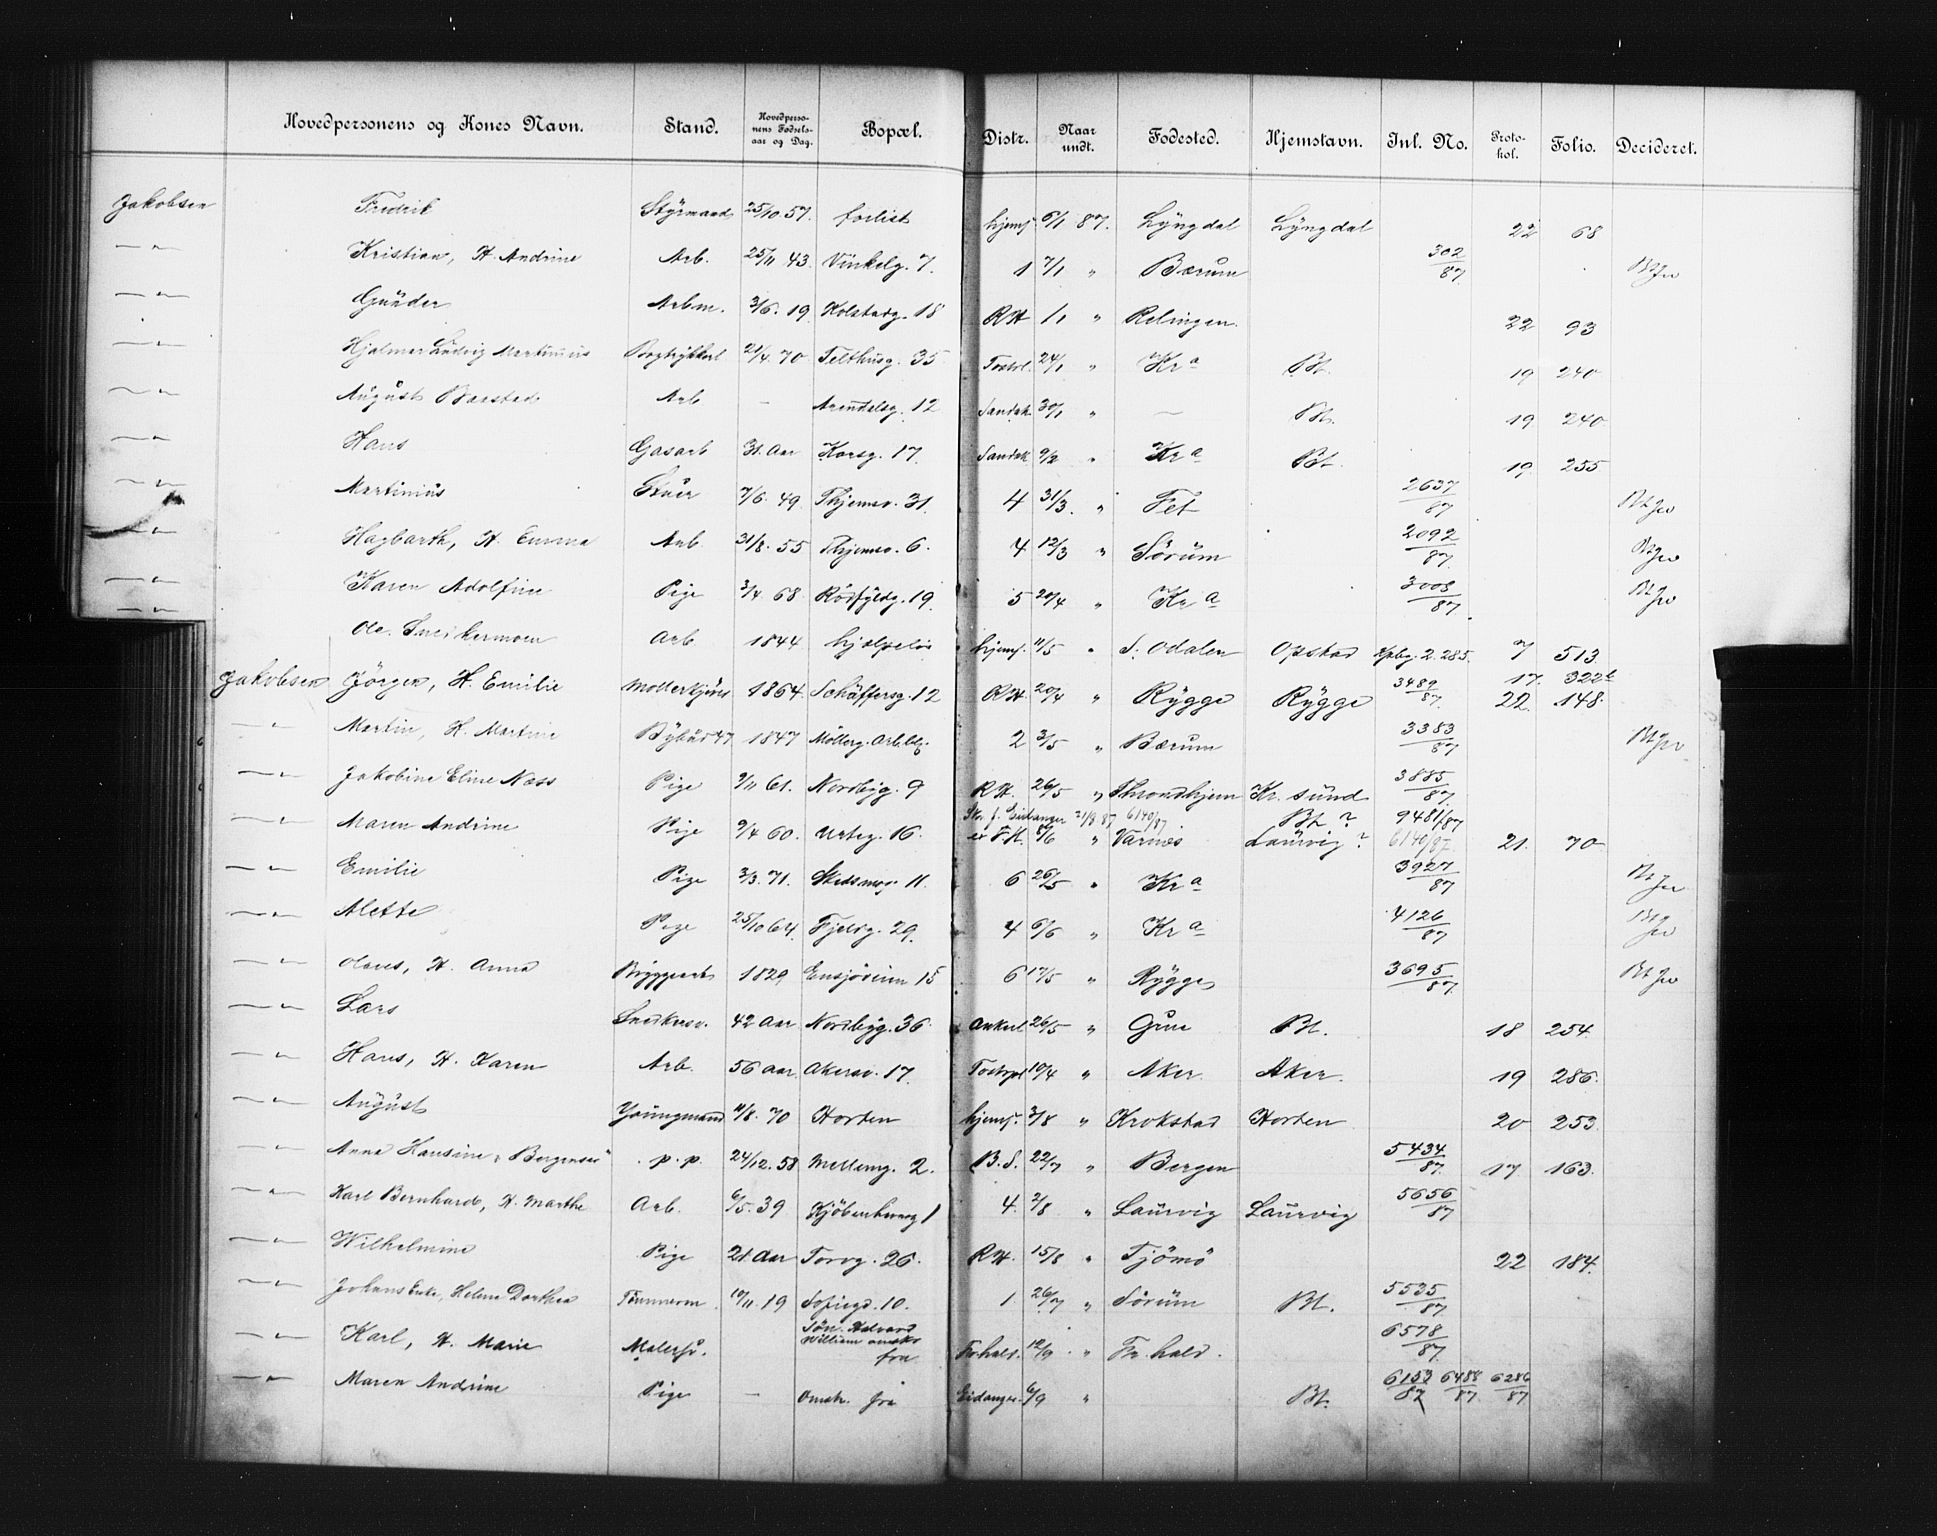 Hovedpersonens og Kones Navn. Stand. Hovedperso- nens Fødsels- aar og Dag. Bopæl. Distr. Naar undt. Fødested. Hjemstavn. Inl. No. Proto- kol. Folio. Decideret.
Jakobsen Fredrik Styrmand 25/10 57. forlist hjemf. 6/1 87. Lyngdal Lyngdal 22 68
— " — Kristian, H. Andrine Arb. 25/11 43. Vinkelg. 7. 1 7/1 " Bærum 302/87
— " — Gunder Arbm. 3/6. 19 Kolstadg. 18 RH 1/1 " Relingen. 22 93
— " — Hjalmar Ludvig Martinius 21/4 70 Telthusg. 35 24/1 " Kr a Bt. 19 240
— " — August Arb — Arendalsg. 12 Sandak 30/1 " — Bt. 19 240
— " — Hans Gasarb 31 Aar Korsg. 17. Sandak 9/2 " Kr a Bt. 19 255
— " — Martinius 7/6. 49 Thjemsv. 31. 4 31/3. " Fet 2637/87
— " — Hagbarth, H. Emma Arb 31/8. 55 Thjemsv. 6. 4 12/3 " Sørum 2092/87
— " — Karen Adolfine Pige 3/4 68 Rødfyldg. 19. 5 20/4 " Kr a 3008/87
— " — Ole Snekkermoen Arb 1844 hjælpeløs hjemf. 11/5 " S. Odalen Opstad 2.285. 7 513
17. 322
Jakobsen Jörgen, H. Emilie 1864 Schäffersg. 12 RH. 20/4 " Rygge Rygge 3489/87 22. 148.
— " — Martin, H. Martine 1847 Möllerg. 2 3/5 " Bærum 3383/87
— " — Jakobine Eline Næss Pige 9/11 61. Nordbyg. 9 RH. 26/5 " Throndhjem Kr. sund 3885/87
Eidanger 21/8 87 6140/87 Bt ? 9481/87
— " — Maren Andrine Pige 9/4 60. Urteg. 16. " Varnes Laurvig? 6140/87 21. 70
— " — Emilie Pige 3/3. 71. Skedsmog. 11. 6 26/5 " Kr a 3927/87
— " — Alette Pige 25/10 64. Fjeldg. 29. 4 6/6 " Kr a 4126/87
— " — Olaus, H. Anna Bryggearb 1829 Ensjöveien 15 6 17/5 " Rygge 3695/87
— " — Lars Snedkersv. 42 Aar Nordbyg. 36. Ankerl 26/5 " Bt. 18 254
— " — Hans, H. Karen Arb. 56 Aar Akersv. 17. 19/4 " Aker Aker. 19 286.
— " — August Youngmand 11/8. 70 Horten hjemf. 3/8 " Krokstad Horten 20 253
— " — Anna Hansine p. p. 24/12. 58 Mellemg. 2. B.S. 22/7 " Bergen 5434/87 17 163.
— " — Karl Bernhard, H. Marthe Arb. 6/5. 39 Kjöbenhavng 1 4. 2/8 " Laurvig Laurvig 5656/87
— " — Wilhelmine Pige 21 Aar Torvg. 26. RH. 15/8 " Tjömö 22 184.
— " — Johans Helene Dorthea Tömmerm. 19/11. 19 Sofiegd. 10. 1. 26/7 " Sörum Bt. 5535/87
Sön. Halvard
— " — Karl, H. Marie Malersv. William omsko fra Fr.hald. 12/9 " Fr. hald. 6578/87
— " — Maren Andrine Pige — Omsk. fra Eidanger 6/9 " Bt. 6153/87 6488/87 6286/87